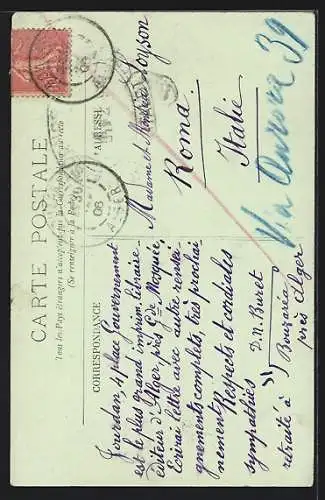 CARTE POSTALE
Tous les Pays étrangers n'acceptent pas la Correspondance au recto
(Se renseigner à la Poste)
CORRESPONDANCE
ADRESSE
Jourdan, 4 place Gouvernement
est le plus grand imprim. libraire-
éditeur d'Alger, près Gde Mosquée,
Ecrirai lettre avec autre rensei-
gnements complets, très prochai
nement
Respects et cordiales
sympathies
D. N. Buret
retraité à Bouzaréa
près Alger
Madame et Loyson
Roma
Italie
Via Aurora 39
ALGER
08